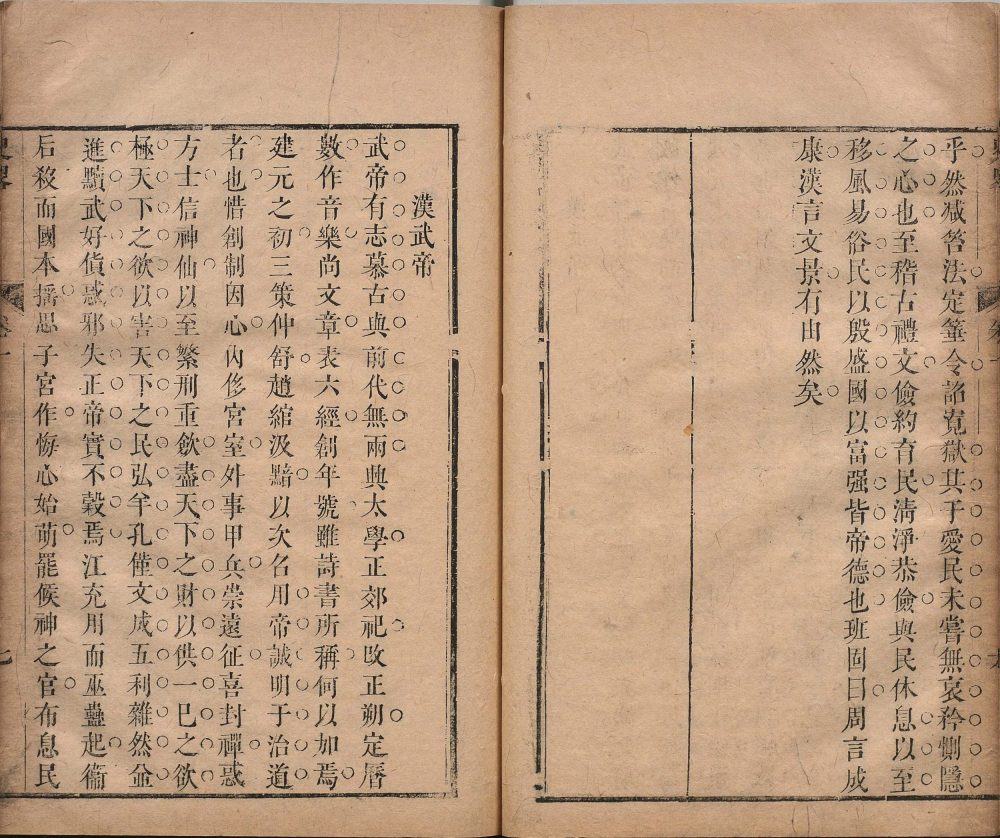 乎然減笞法定箠令詔寬獄其于愛民未嘗無哀矜惻隱
之心也至稽古禮文儉約育民淸淨恭儉與民休息以至
移風易俗民以殷盛國以富强皆帝德也班固曰周言成
康漢言文景有由然矣
漢武帝
武帝有志慕古典前代無兩興太學正郊祀改正朔定曆
數作音樂尚文章表六經創年號雖詩書所稱何以加焉
建元之初三策仲舒趙綰汲黯以次名用帝誠明于治道
者也惜創制因心內侈宮室外事甲兵崇遠征喜封禪惑
方士信神仙以至繁刑重斂盡天下之財以供一巳之欲
極天下之欲以害天下之民弘羊孔僅文成五利雜然並
進黷武好貨惑邪失正帝實不穀焉江充用而巫蠱起衞
后殺而國本搖思子宮作悔心始萌罷候神之官布息民